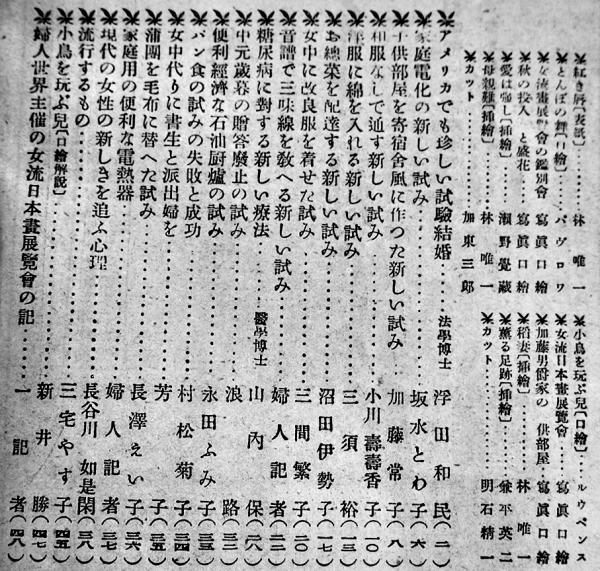 紅き唇〔表紙〕………林唯一
とんぼの舞〔口繪〕………パヴロワ
女流畫展覽會の鑑別會………寫眞口繪
秋の投入と盛花………寫眞口繪
愛は強し〔挿繪〕………瀨野覺藏
母親難〔挿繪〕………林唯一
カット………加東三郎
小鳥を玩ぶ兒〔口繪〕………ルウベンス
女流日本畫展覽會………寫眞口繪
加藤男爵家の子供部屋………寫眞口繪
稻妻〔挿繪〕………林唯一
薰る足跡〔挿繪〕………兼平英二
カット………明石精一
アメリカでも珍しい試驗結婚………法學博士 浮田和民(二)
家庭電化の新しい試み………坂水とわ子(六)
子供部屋を寄宿舍風に作つた新しい試み………加藤常子(八)
和服なしで通す新しい試み………小川壽壽香(一〇)
洋服に綿を入れる新しい試み………三須裕(一三)
お總菜を配達する新しい試み………沼田伊勢子(一七)
女中に改良服を着せた試み………三間繁子(二〇)
音譜で三味線を敎へる新しい試み………婦人記者
糖尿病に對する新しい療法………醫學博士 山內保(二八)
中元歲暮の贈答廢止の試み………浪路(三二)
便利經濟な石油厨爐の試み………永田ふみ子
パン食の試みの失敗と成功………村松菊子(三四)
女中代りに書生と派出婦を………芳子
蒲團を毛布に替へた試み………長澤えい子
家庭用の便利な電熱器………婦人記者(三七)
現代の女性の新しきを追ふ心理………長谷川如是閑(三八)
流行するもの………三宅やす子(四五)
小鳥を玩ぶ兒〔口繪解說〕………新井勝(四七)
婦人世界主催の女流日本畫展覽會の記………一記者(四八)